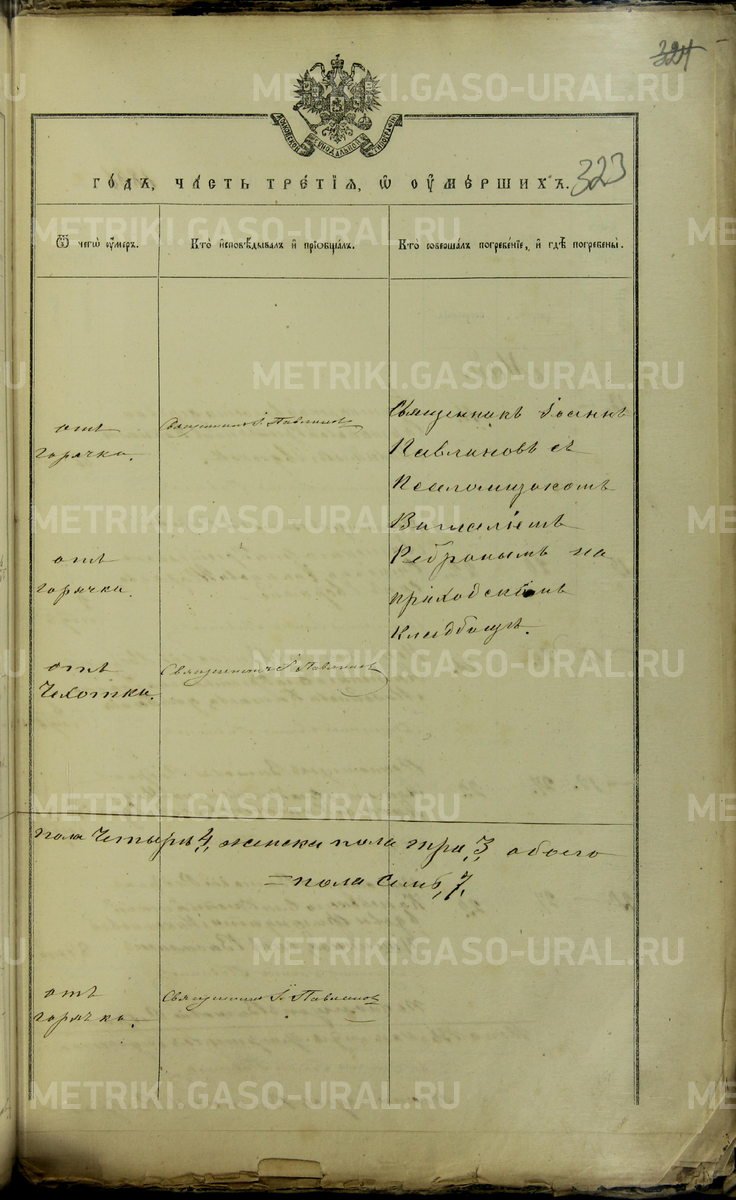 324
323
МОСКОВСКОЙ СѴНОДАЛЬНОЙ ТИПОГРАФІИ
ГОДЪ, ЧАСТЬ ТРЕТІЯ, Ѡ ОУМЕРШИХЪ.
Ѿ чегѡ оумеръ.
Кто исповѣдывалъ и пріобщалъ.
Кто совершалъ погребеніе, и гдѣ погребены.
отъ
горячки.
Священникъ І. Павлиновъ
Священникъ Іоаннъ
Павлиновъ съ
Псаломщикомъ
Ребровымъ на
приходскомъ
Кладбищѣ.
отъ
горячки.
отъ
Чехотки.
Священникъ І. Павлиновъ
пола Четыре 4, женска пола три 3, обоего
=пола семь 7,
отъ
горячки.
Священникъ І. Павлиновъ
METRIKI.GASO-URAL.RU